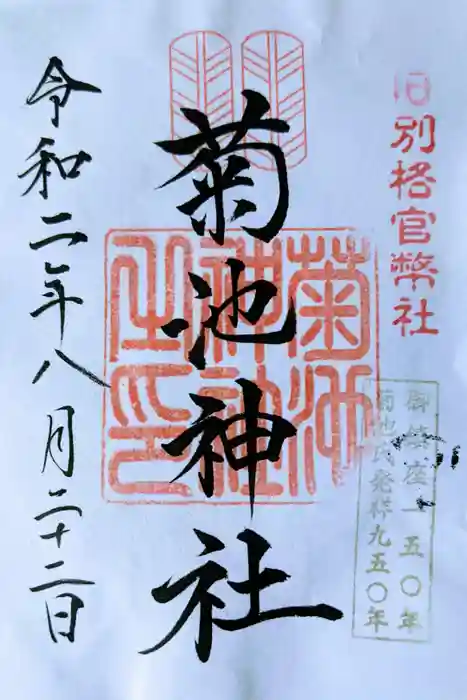 旧別格官幣社
御鎮座一五〇年
菊池氏発祥九五〇年
菊池神社
菊池神社之印
令和二年八月二十二日